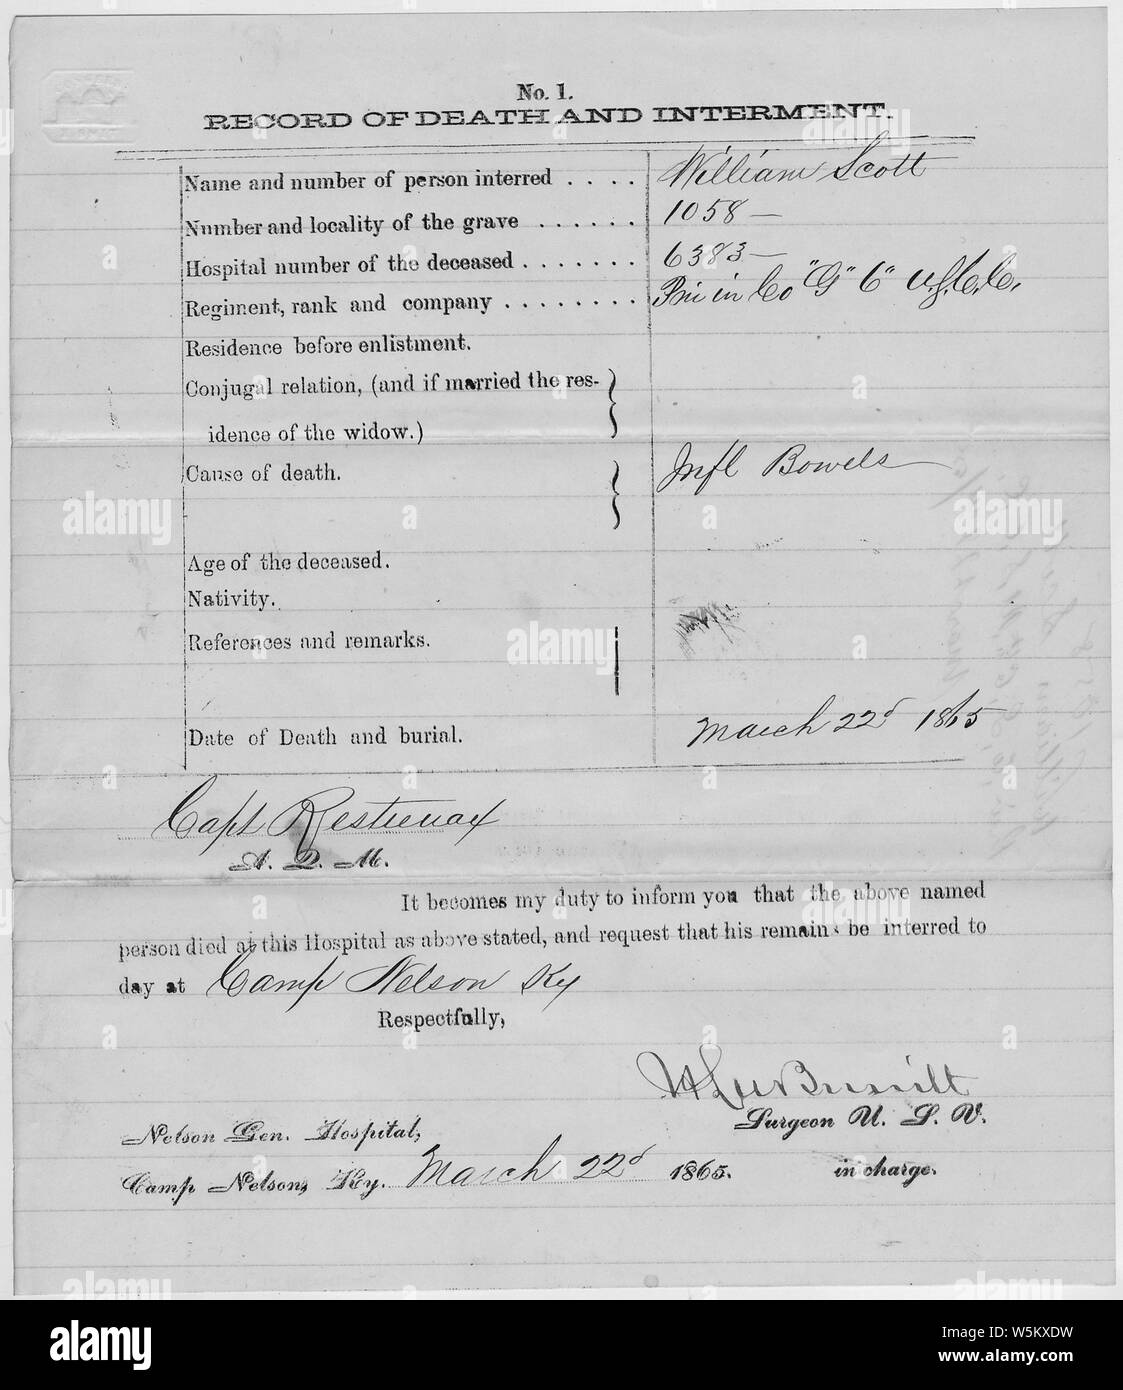 No. 1.
RECORD OF DEATH AND INTERMENT.
Name and number of person interred . . . . William Scott
Number and locality of the grave . . . . . . 1058 —
Hospital number of the deceased . . . . . . . 6383 —
Regiment, rank and company . . . . . . . . Pri in Co "G" 6" U.S.C.C.
Residence before enlistment.
Conjugal relation, (and if married the res-
idence of the widow.)
Cause of death. Infl Bowels
Age of the deceased.
Nativity.
References and remarks.
Date of Death and burial. March 22d 1865
Capt Restieuax
A. Q. M.
It becomes my duty to inform you that the above named
person died at this Hospital as above stated, and request that his remains be interred to
day at Camp Nelson Ky
Respectfully,
Surgeon U. S. V.
in charge.
Nelson Gen. Hospital,
Camp Nelson, Ky. March 22d 1865.
alamy
Image ID: W5KXDW
www.alamy.com